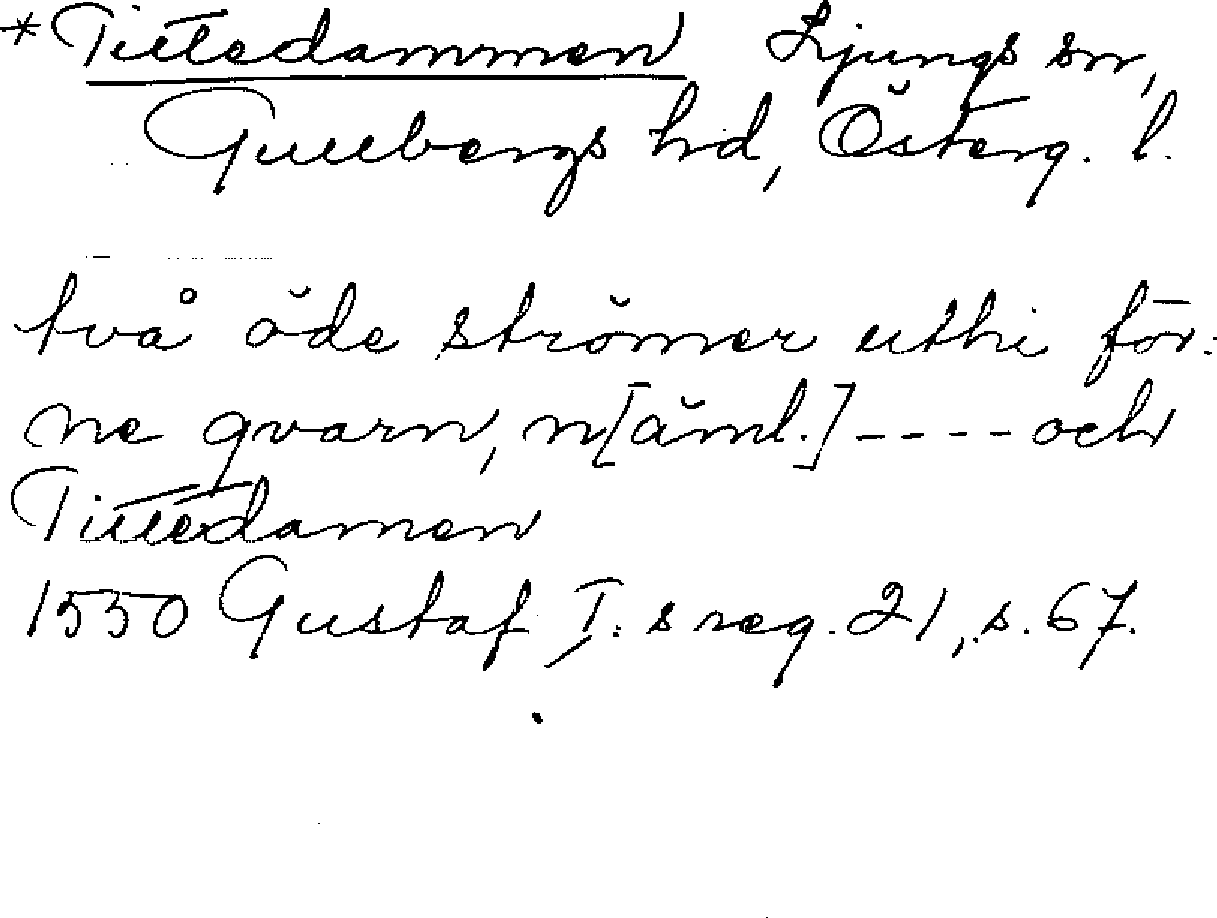 *Tittedammen Ljungs sn,
Gullbergs hd, Österg. l.
två öde strömer uthi för:
ne qvarn, n[äml.] ---- och
Tittedamen
1550 Gustaf I: s reg. 21, s. 67.